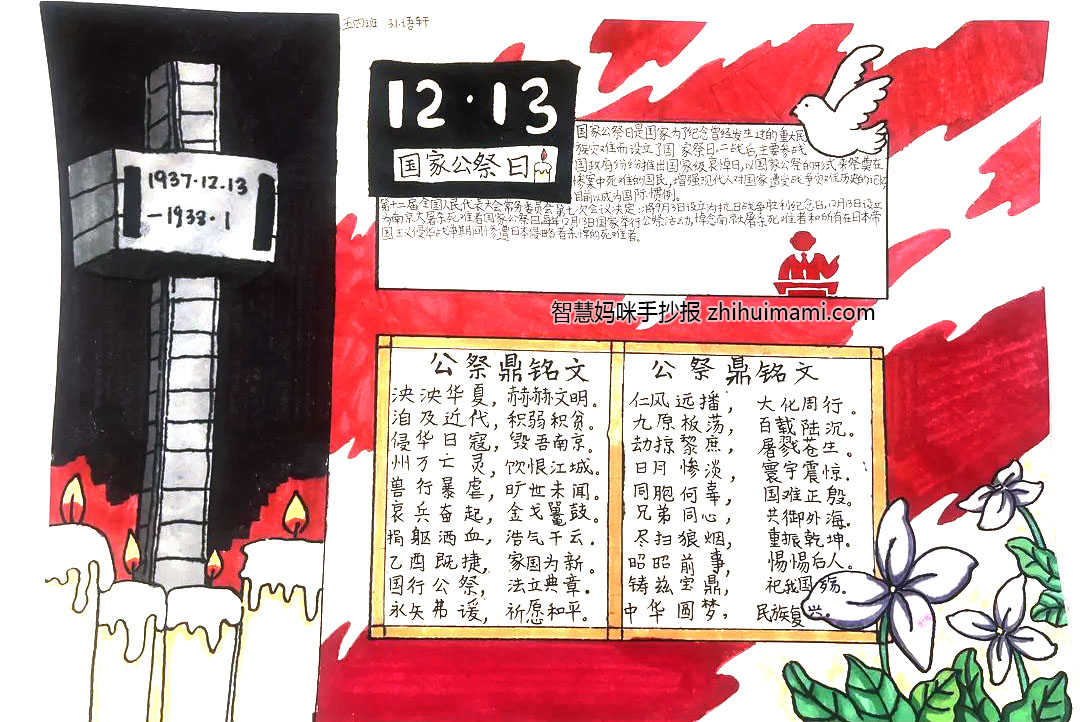 五四班 刘语轩
12·13
国家公祭日
1937·12·13
-1938·1
国家公祭日是国家为了纪念曾经发生过的重大民
族灾难而设立了国家祭日.二战后,主要参战
国政府纷纷推出国家级哀悼日,以国家公祭的形式来祭奠在
惨案中死难的国民,增强现代人对国家遭受战争灾难历史的记忆
目前以成为国际惯例。
第十二届全国人民代表大会常务委员会第七次会议决定:将9月3日设立为抗日战争胜利纪念日,12月13日设立
为南京大屠杀死难者国家公祭日,每年12月13日国家举行公祭活动,悼念南京大屠杀死难者和所有在日本帝
国主义侵华战争期间惨遭日本侵略者杀悼的死难者。
智慧妈咪手抄报 zhihuimami.com
公祭鼎铭文
泱泱华夏,赫赫文明。
洎及近代,积弱积贫。
侵华日寇,毁吾南京。
州万亡灵,饮恨江城。
兽行暴虐,旷世未闻。
哀兵奋起,金戈鼍鼓。
捐躯洒血,浩气干云。
乙酉既捷,家国为新。
国行公祭,法立典章。
永矢弗谖,祈愿和平。
公祭鼎铭文
仁风远播,大化周行。
九原板荡,百载陆沉。
劫掠黎庶,屠戮苍生。
日月惨淡,寰宇震惊。
同胞何辜,国难正殷。
兄弟同心,共御外海。
尽扫狼烟,重振乾坤。
昭昭前事,惕惕后人。
铸兹宝鼎,祀我国殇。
中华圆梦,民族复兴。